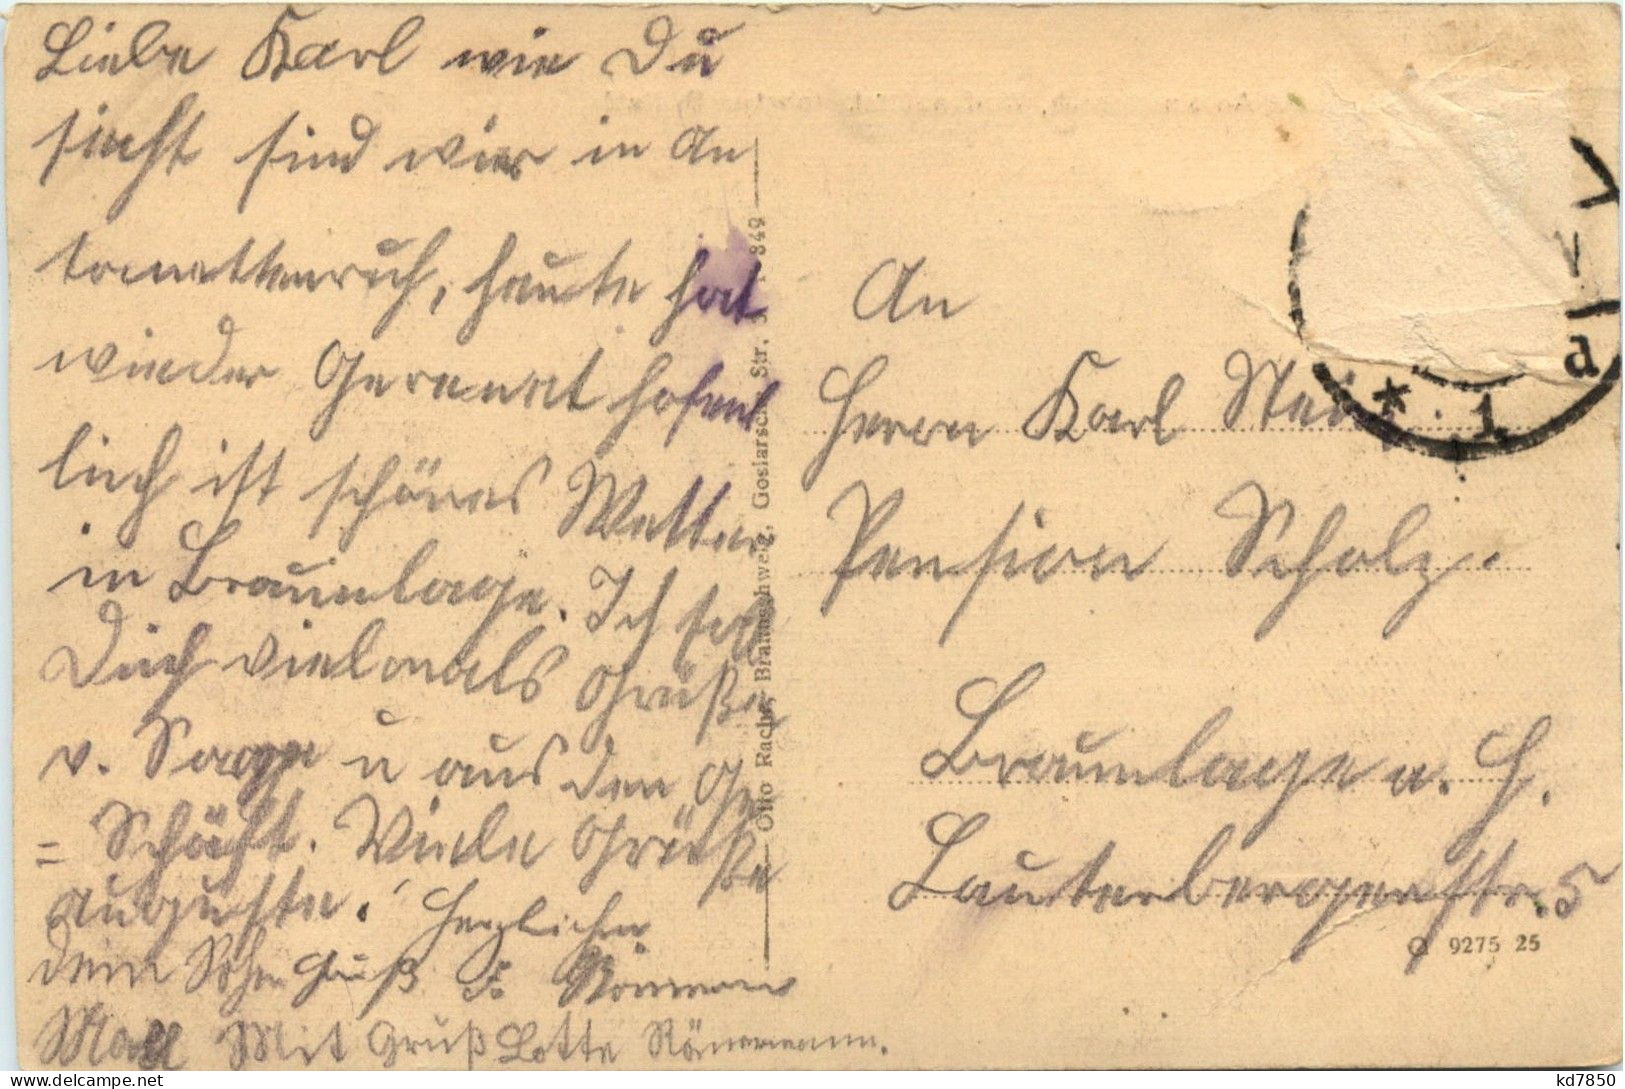 Liebe Karl wie Du
siehst sind wir in An
tonettenruh, heute hat
wieder Gerenat hofent
lich ist schönes Wetter
in Braunlage. Ich soll
Dich vielmals Grüße
v. u aus den Ge
= Schäft. Viele Grüße
Auguste. Herzlichen
dein Gruß F. Römermann
Mit Gruß Lotte Römermann.
Otto Rache, Braunschweig, Goslarsche Str. 849
An
Herrn Karl
Pension Scholz.
Braunlage a. H.
Lauterbergerstr. 5
9275 25
* 1 d
kd7850